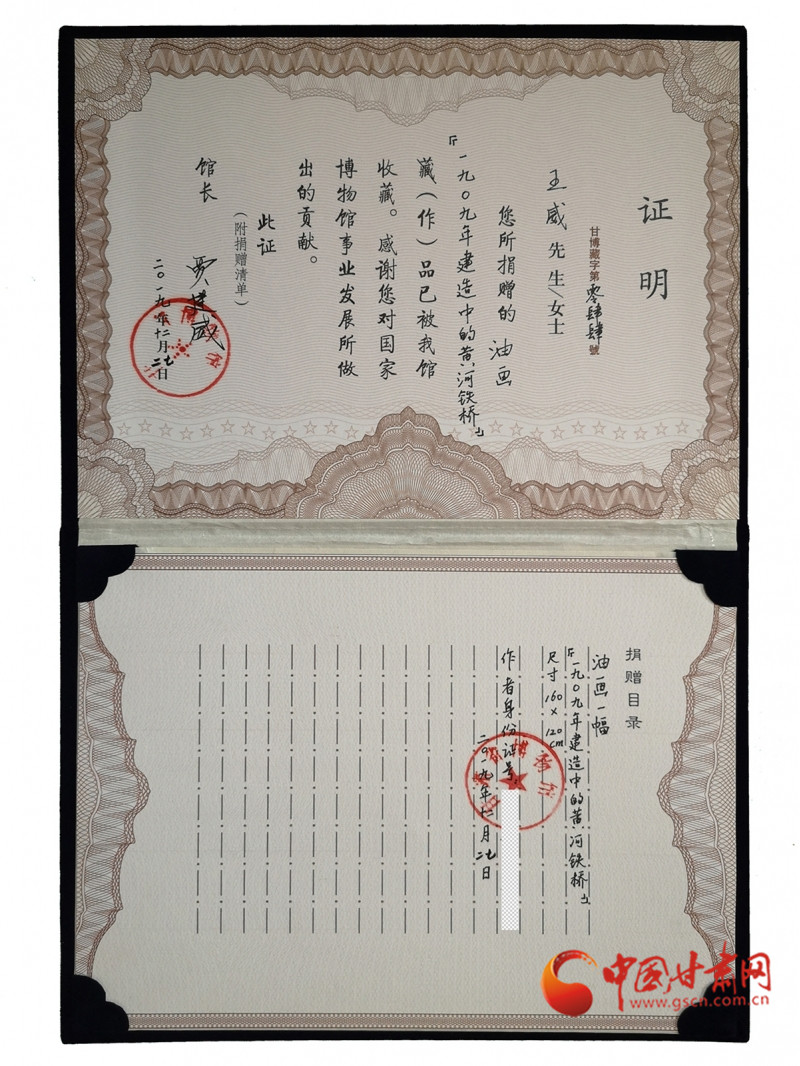 证明
甘博藏字第零肆肆號
王威先生/女士
您所捐赠的油画
『一九〇九年建造中的黄河铁桥』
藏（作）品已被我馆
收藏。感谢您对国家
博物馆事业发展所做
出的贡献。
此证
（附捐赠清单）
馆长 贾建威
二〇一九年十二月二七日
捐赠目录
油画一幅
『一九〇九年建造中的黄河铁桥』
尺寸160×120cm
作者身份证号
二〇一九年十二月二七日
中国甘肃网
www.gscn.com.cn